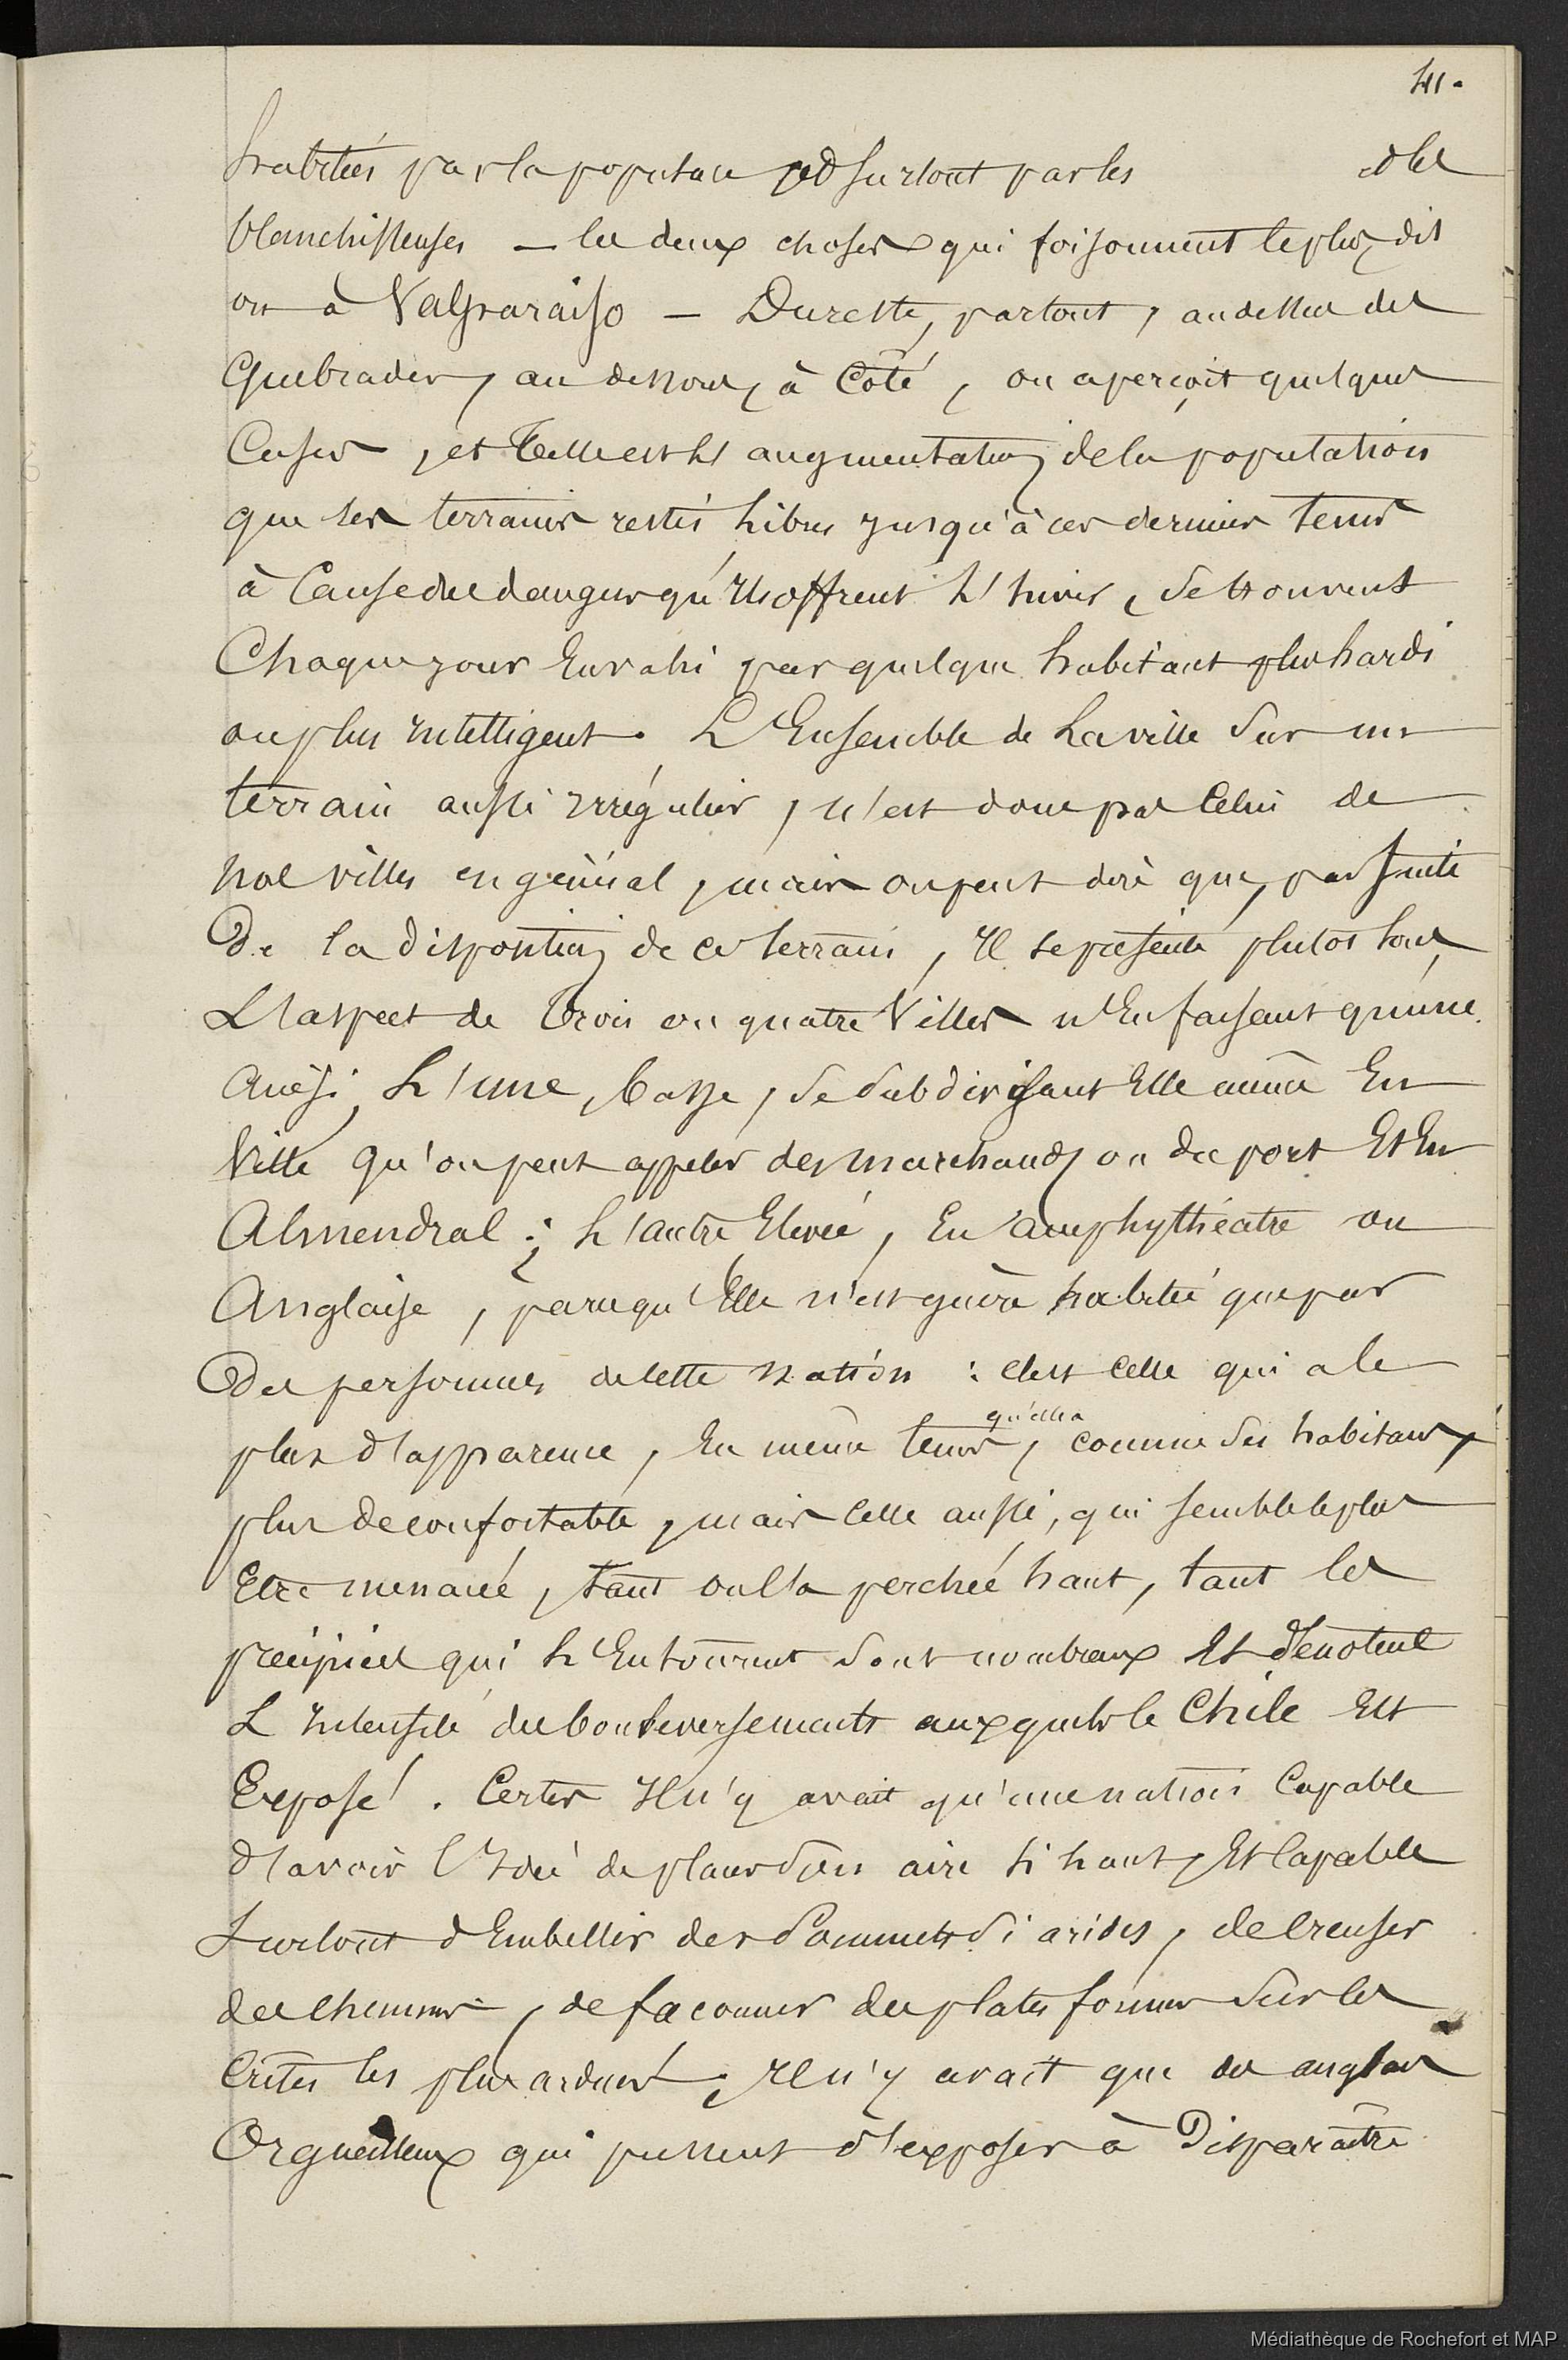 41.
habitées par la populace et surtout par les des
blanchisseuses — les deux choses qui foisonnent le plus, dit
on à Valparaiso — Dureste, partout, au dessus des
Quebrades, au dessous, à Côté, on aperçoit quelques
Cases, et telle est l'augmentation de la population
que les terrains restés libres jusqu'à ces derniers tems
à Cause des dangers qu'ils offrent l'hiver, se trouvent
Chaque jour Envahi par quelque habitant plus hardi
ou plus intelligent. L'Ensemble de la ville Sur un
terrain aussi irrégulier, n'est donc pas Celui de
nos villes en général, mais on peut dire que, par suite
De la disposition de ce terrain, il se présente plutot sous
L'aspect de trois ou quatre Villes n'En faisant qu'une.
Ainsi, L'une, basse, se subdivisant Elle même En
Ville qu'on peut appeler des marchands ou du port Et En
Almendral ; L'autre Elevée, En amphythéatre ou
Anglaise, parcequ'Elle n'est guère habitée que par
Des personnes de cette nation : c'est celle qui a le
plus d'apparence, En même tems qu'elle a, comme ses habitans,
plus de confortable, mais Celle aussi, qui semble le plus
Etre menacée, tant on l'a perchée haut, tant les
précipices qui L'Entourent sont nombreux Et dénotent
L'intensité des bouleversements auxquels le Chile Est
Exposé. Certes il n'y avait qu'une nation Capable
d'avoir l'idée de placer son aire si haut, Et Capable
Surtout d'Embellir des Sommets si arides, de Creuser
des Chemins, de façonner des plates formes Sur les
Crêtes les plus ardues ; il n'y avait que des anglais
Orgueilleux qui pussent s'exposer à Disparaître
Médiathèque de Rochefort et MAP